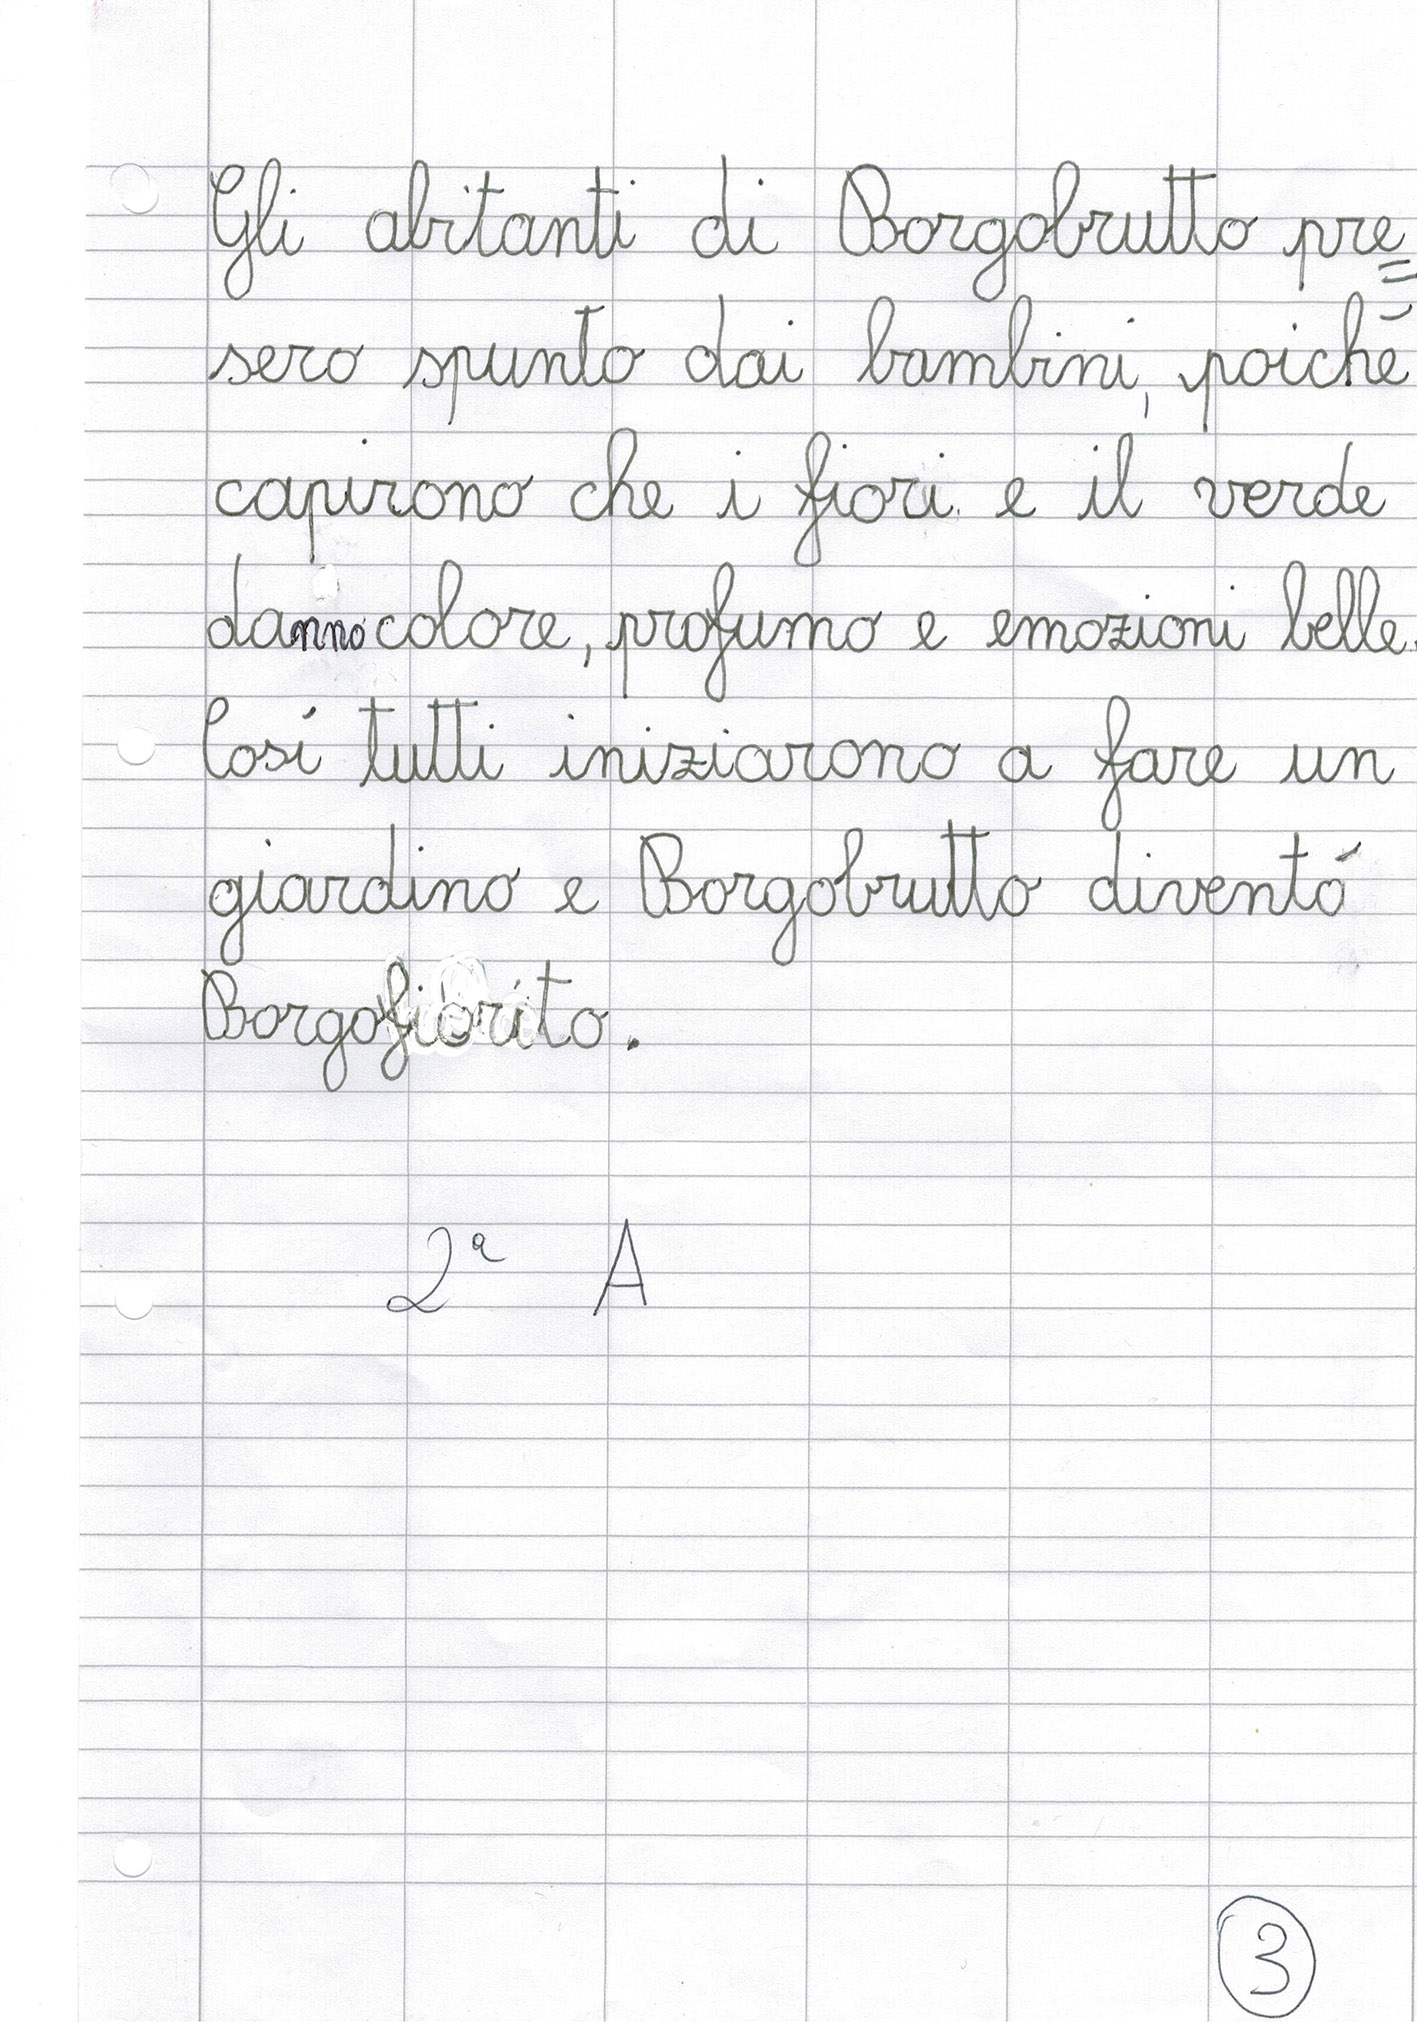 Gli abitanti di Borgobrutto pre=
sero spunto dai bambini, poiché
capirono che i fiori e il verde
danno colore, profumo e emozioni belle.
Cosí tutti iniziarono a fare un
giardino e Borgobrutto diventó
Borgofiorito.
2ª A
3